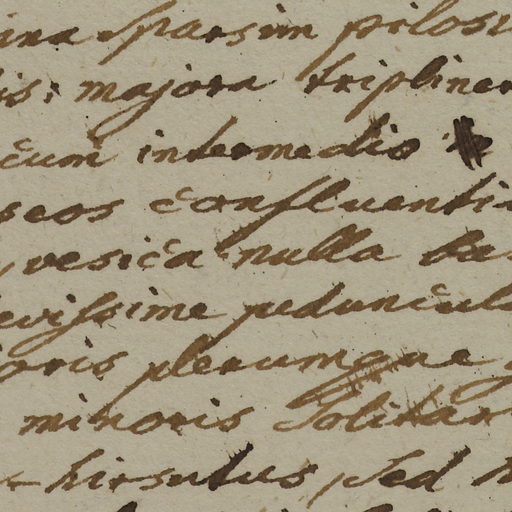 sparsim pilosi
majora tripliner
cum intermedio
seos confluenti
vesica nulla ba
evissime peduncul
oris plerumque
minoris Solitar
hirsutus, sed